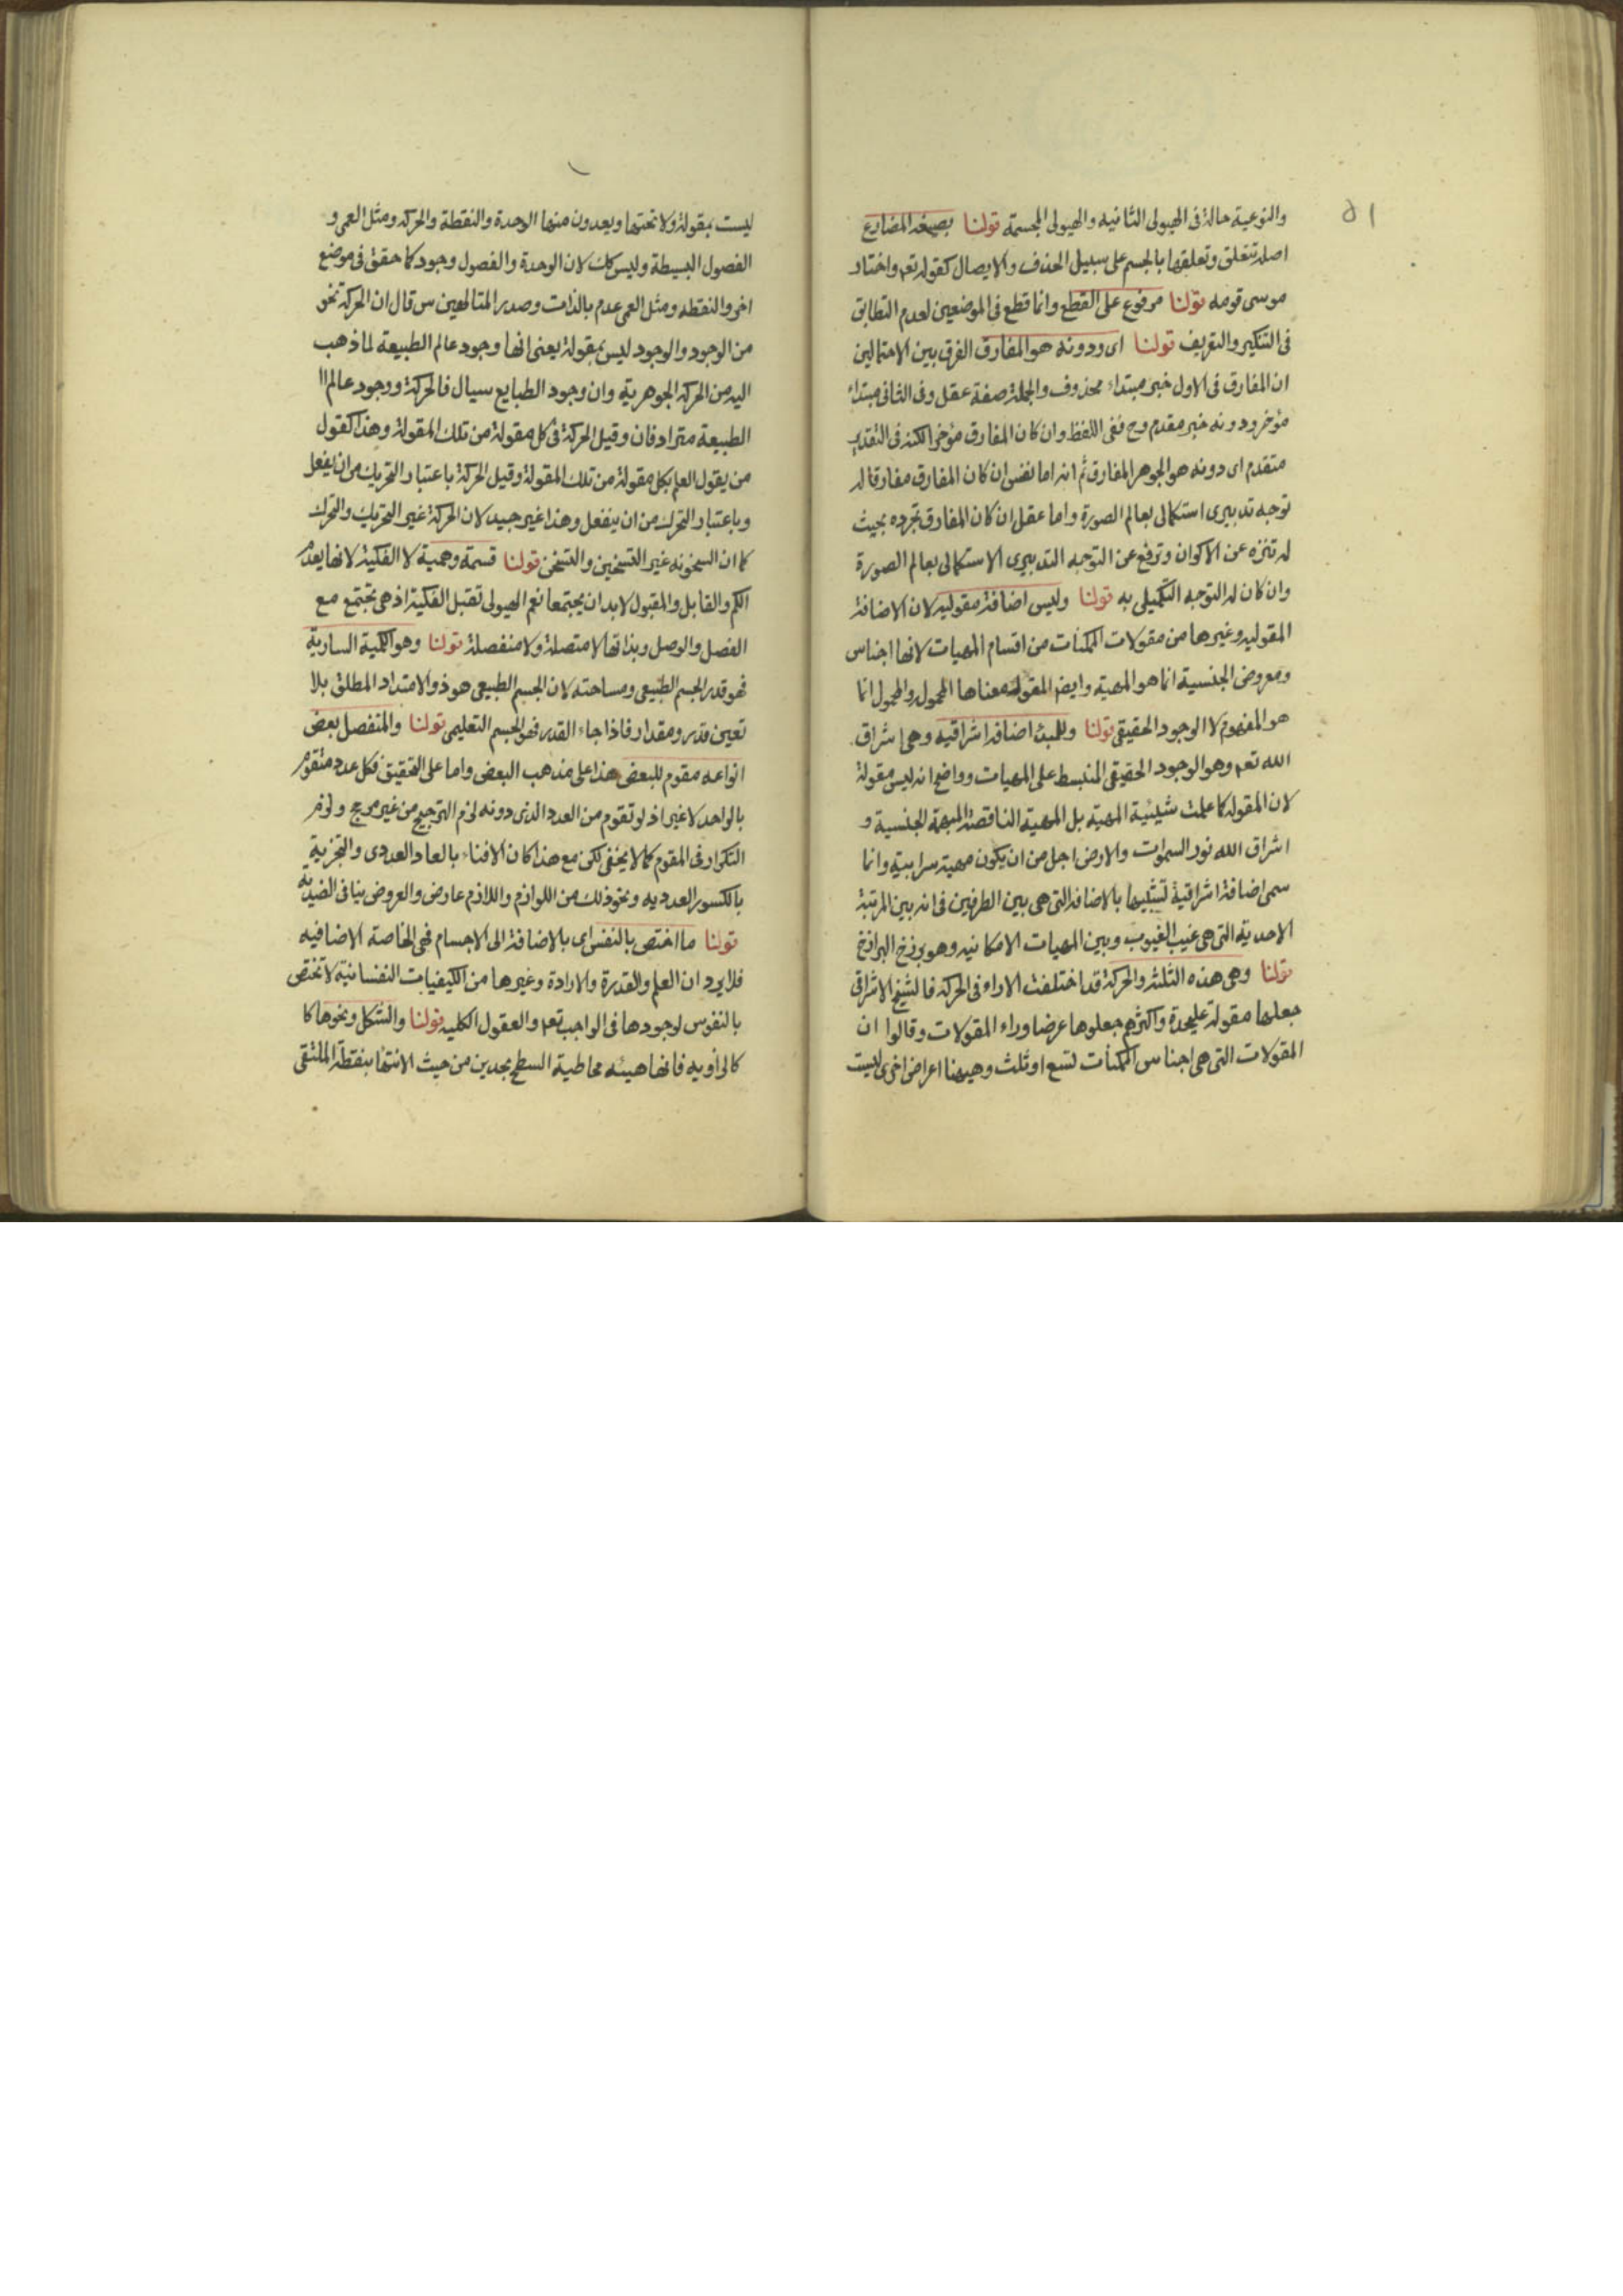 ۵۱
والنوعية حالة فى الهيولى الثانيه والهيولى المجسمة قولنا بصيغه المضارع
اصله تتعلق وتعلقها بالجسم على سبيل الحذف والايصال كقوله تعم واختار
موسى قومه قولنا مرفوع على القطع وانما قطع فى الموضعين لعدم التطابق
فى التنكير والتعريف قولنا اى ودونه هو المفارق الفرق بين الاحتمالين
ان المفارق فى الاول خبر مبتداء محذوف والجملة صفة عقل وفى الثانى مبتداء
مؤخر ودونه خبر مقدم وح ففى اللفظ وان كان المفارق مؤخرا لكنه فى التقدير
متقدم اى دونه هو الجوهر المفارق ثم انه اما نفس ان كان المفارق مفارقا له
توجه تدبيرى استكمالى بعالم الصورة واما عقل ان كان المفارق تجرده بحيث
له تنزه عن الاكوان وترفع عن التوجه التدبيرى الاستكمالى بعالم الصورة
وان كان له التوجه التكميلى به قولنا وليس اضافة مقوليه لان الاضافة
المقوليه وغيرها من مقولات الممكنات من اقسام المهيات لانها اجناس
ومعروض الجنسية انما هو المهية وايضا المقولة معناها المحمول والمحمول انما
هو المفهوم لا الوجود الحقيقى قولنا وللمبدء اضافه اشراقيه وهى اشراق
الله تعم وهو الوجود الحقيقى المنبسط على المهيات وواضح انه ليس مقولة
لان المقوله كما علمت شيئية المهية بل المهية الناقصة المبهمة الجنسية و
اشراق الله نور السموات والارض اجل من ان يكون مهية سرابية وانما
سمى اضافة اشراقية تشبيها بالاضافه التى هى بين الطرفين فى انه بين المرتبة
الاحدية التى هى غيب الغيوب وبين المهيات الامكانيه وهو برزخ البرازخ
قولنا وهى هذه الثلثة والحركة قد اختلفت الاراء فى الحركه فالشيخ الاشراقى
جعلها مقولة عليحدة واكثرهم جعلوها عرضا وراء المقولات وقالوا ان
المقولات التى هى اجناس الممكنات تسع او ثلث وهيهنا اعراض اخرى ليست
ليست بمقولة ولا تحتها ويعدون منها الوحدة والنقطة والحركه ومثل العمى و
الفصول البسيطة وليس كك لان الوحدة والفصول وجود كما حقق فى موضع
اخر والنقطه ومثل العمى عدم بالذات وصدر المتالهين س قال ان الحركة نحو
من الوجود والوجود ليس بمقولة يعنى انها وجود عالم الطبيعة لما ذهب
اليه من الحركه الجوهرية وان وجود الطبايع سيال فالحركة ووجود عالم ا
الطبيعة مترادفان وقيل الحركة فى كل مقولة من تلك المقولة وهذا كقول
من يقول العلم بكل مقولة من تلك المقولة وقيل الحركة باعتبار التحريك من ان يفعل
وباعتبار التحرك من ان ينفعل وهذا غير جيد لان الحركة غير التحريك والتحرك
كما ان السخونه غير التسخين والتسخن قولنا قسمة وهمية لا الفكية لانها يعدم
الكم والقابل والمقبول لابد ان يجتمعا نعم الهيولى تقبل الفكية اذ هى تجتمع مع
الفصل والوصل وبذاتها لا متصلة ولا منفصلة قولنا وهو الكمية السارية
فهو قدر الجسم الطبيعى ومساحته لان الجسم الطبيعى هو ذو الامتداد المطلق بلا
تعين قدر ومقدار فاذا جاء القدر فهو الجسم التعليمى قولنا والمنفصل بعض
انواعه مقوم للبعض هذا على مذهب البعض واما على التحقيق فكل عدد متقوم
بالواحد لا غير اذ لو تقوم من العدد الذى دونه لزم الترجيح من غير مرجح ولزم
التكرار فى المقوم كما لا يخفى لكن مع هذا كان الافناء بالعاد العددى والتجزية
بالكسور العدديه ونحو ذلك من اللوازم واللازم عارض والعروض ينافى الضدية
قولنا ما اختص بالنفس اى بالاضافة الى الاجسام فهى الخاصة الاضافيه
فلا يرد ان العلم والقدرة والارادة وغيرها من الكيفيات النفسانية لا تختص
بالنفوس لوجودها فى الواجب تعم والعقول الكليه قولنا والشكل ونحوها كا
كالزاويه فانها هيئه محاطية السطح بحدين من حيث الانتهاء بنقطة الملتقى